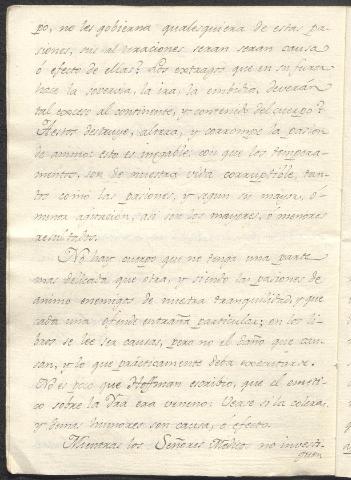 po, no les gobierna qualesquiera de estas pa-
siones, sus alteraciones seran seran causa
ó efecto de ellas? Los extragos que en su furor
hace la sobervia, la ira, la embidia, deverán
tal exceso al continente, y contenido del cuerpo?
A estos destruye, altera, y corrompe la pasion
de animo: esto es inegable: con que los tempera-
mentos, son de nuestra vida corruptible, tan-
to como las pasiones, y segun su mayor, ó
menor agitacion, asi son los mayores, ó menores
resultados.
No hay cuerpo que no tenga una parte
mas delicada que otra, y siendo las pasiones de
animo enemigos de nuestra tranquilidad, y que
cada una ofende entraña particular; en los li-
bros se lee ser causas, pero no el daño que cau-
san, y lo que prácticamente deba
No es poco que Hoffman escribio, que el emeti-
co sobre la Yra era veneno: Vease si la colera,
y demas humores son causa, ó efecto.
Mientras los Señores Medicos no investi-
guen